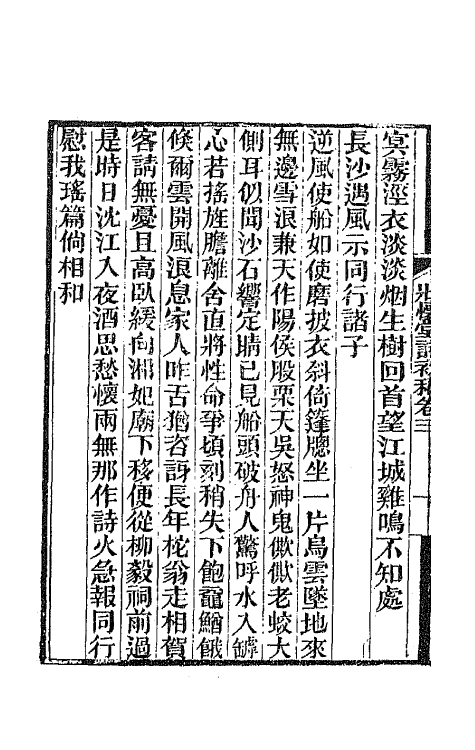 冥霧溼衣淡淡烟生樹回首望江城雞鳴不知處
長沙遇風示同行諸子
逆風使船如使磨披衣斜倚篷牕坐一片烏雲墜地來
無邊雪浪兼天作陽侯股栗天吳怒神鬼歘歘老蛟大
側耳似聞沙石響定睛已見船頭破舟人驚呼水入罅
心若搖旌膽離舍直將性命爭頃刻稍失下飽黿鰌餓
倏爾雲開風浪息家人咋舌猶咨訝長年柁翁走相賀
客請無憂且高臥緩向湘妃廟下移便從柳毅祠前過
是時日沈江入夜酒思愁懷兩無那作詩火急報同行
慰我瑤篇倘相和